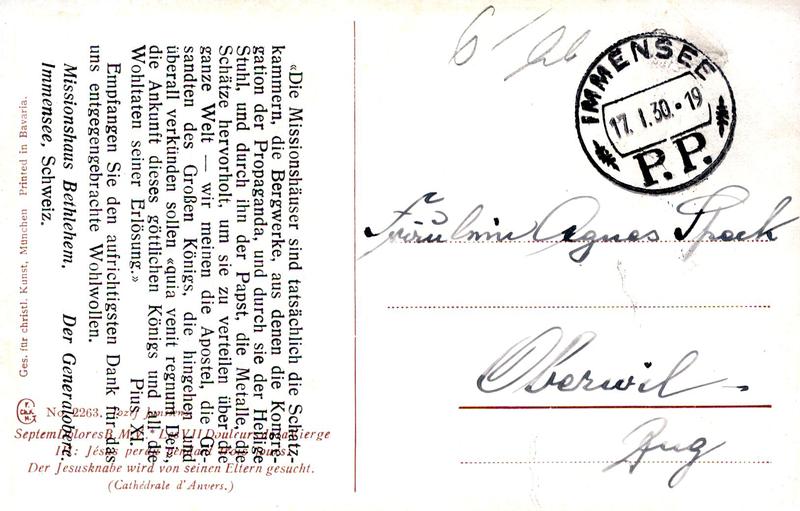 «Die Missionshäuser sind tatsächlich die Schatz-
kammern, die Bergwerke, aus denen die Kongre-
gation der Propaganda, und durch sie der Heilige
Stuhl, und durch ihn der Papst, die Metalle, die
Schätze hervorholt, um sie zu verteilen über die
ganze Welt — wir meinen die Apostel, die Ge-
sandten des Großen Königs, die hingehen und
überall verkünden sollen «quia venit regnum Dei»,
die Ankunft dieses göttlichen Königs und all die
Wohltaten seiner Erlösung.» Pius XI.
Empfangen Sie den aufrichtigsten Dank für das
uns entgegengebrachte Wohlwollen.
Missionshaus Bethlehem, Der Generalobere.
Immensee, Schweiz.
Ges. für christl. Kunst, München Printed in Bavaria.
No. 2263.
Septem Dolores B. M. V. Les VII Douleurs de la Vierge
III: Jésus perdu
Der Jesusknabe wird von seinen Eltern gesucht.
(Cathédrale d'Anvers.)
IMMENSEE
17. I. 30. - 19
P.P.
Fräulein Agnes Speck
Oberwil
Zug